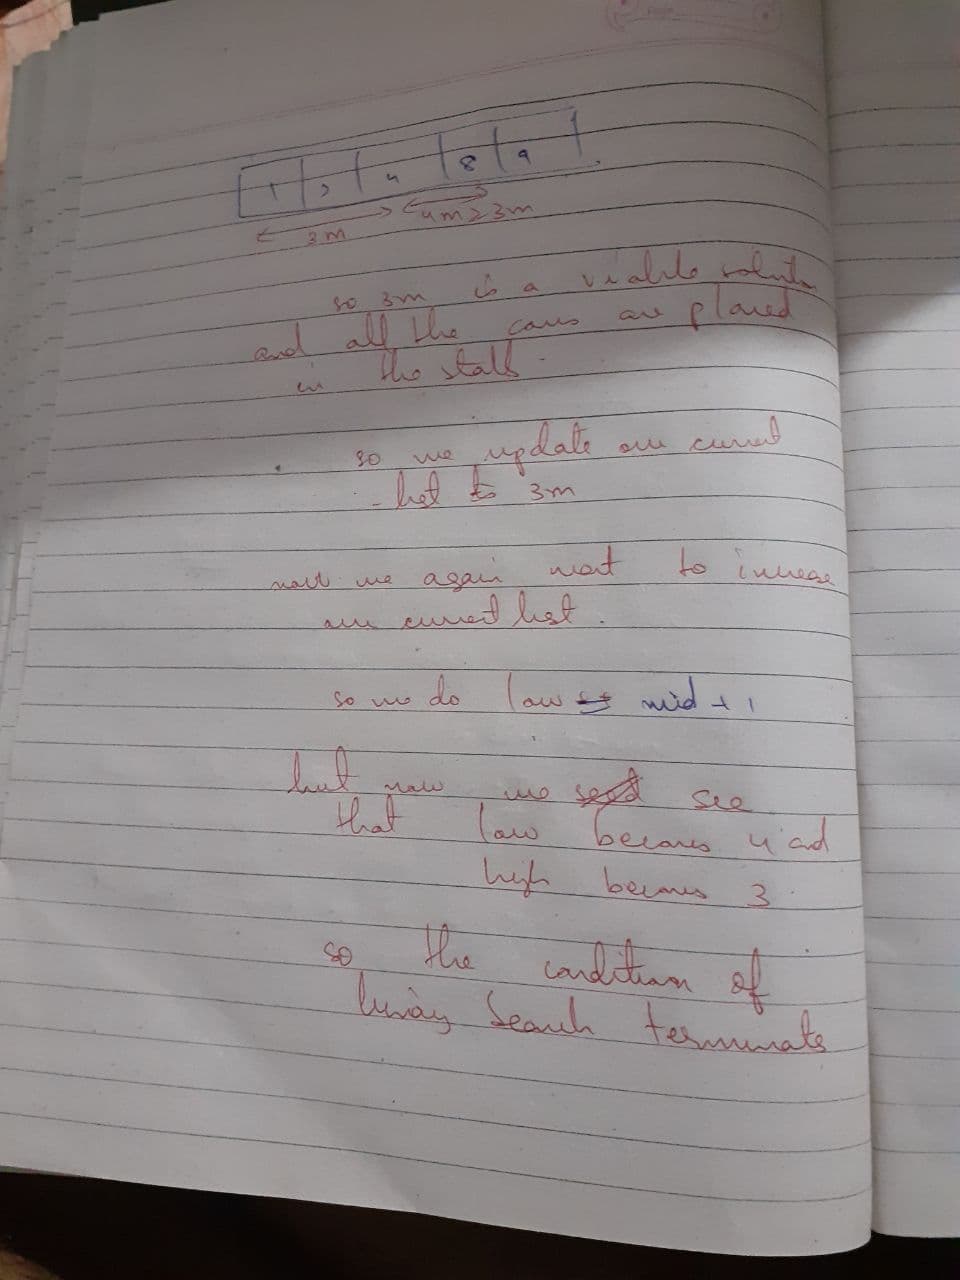 1 2 4 8 9
3m 4m ≥ 3m
so 3m is a viable solution
and all the cows are placed
in the stalls.
so we update our current
best to 3m
now we again want to increase
our current best.
so we do low = mid + 1
but now we see
that low becomes 4 and
high becomes 3.
so the condition of
binary search terminates